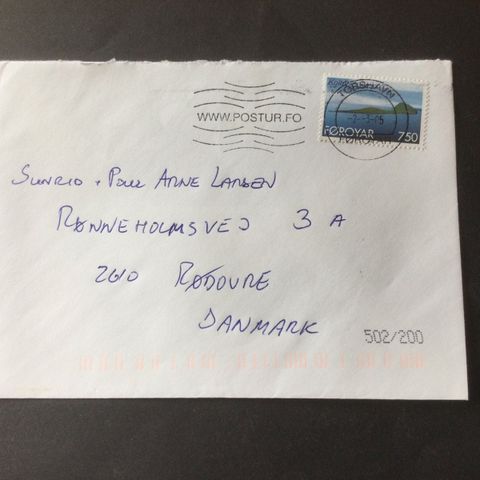 TÓRSHAVN
WWW.POSTUR.FO
-2-3-05
FØROYAR 750
SUNRID + POUL ARNE LARSEN
RØNNEHOLMSVEJ 3 A
2610 RØDOVRE
DANMARK
502/200